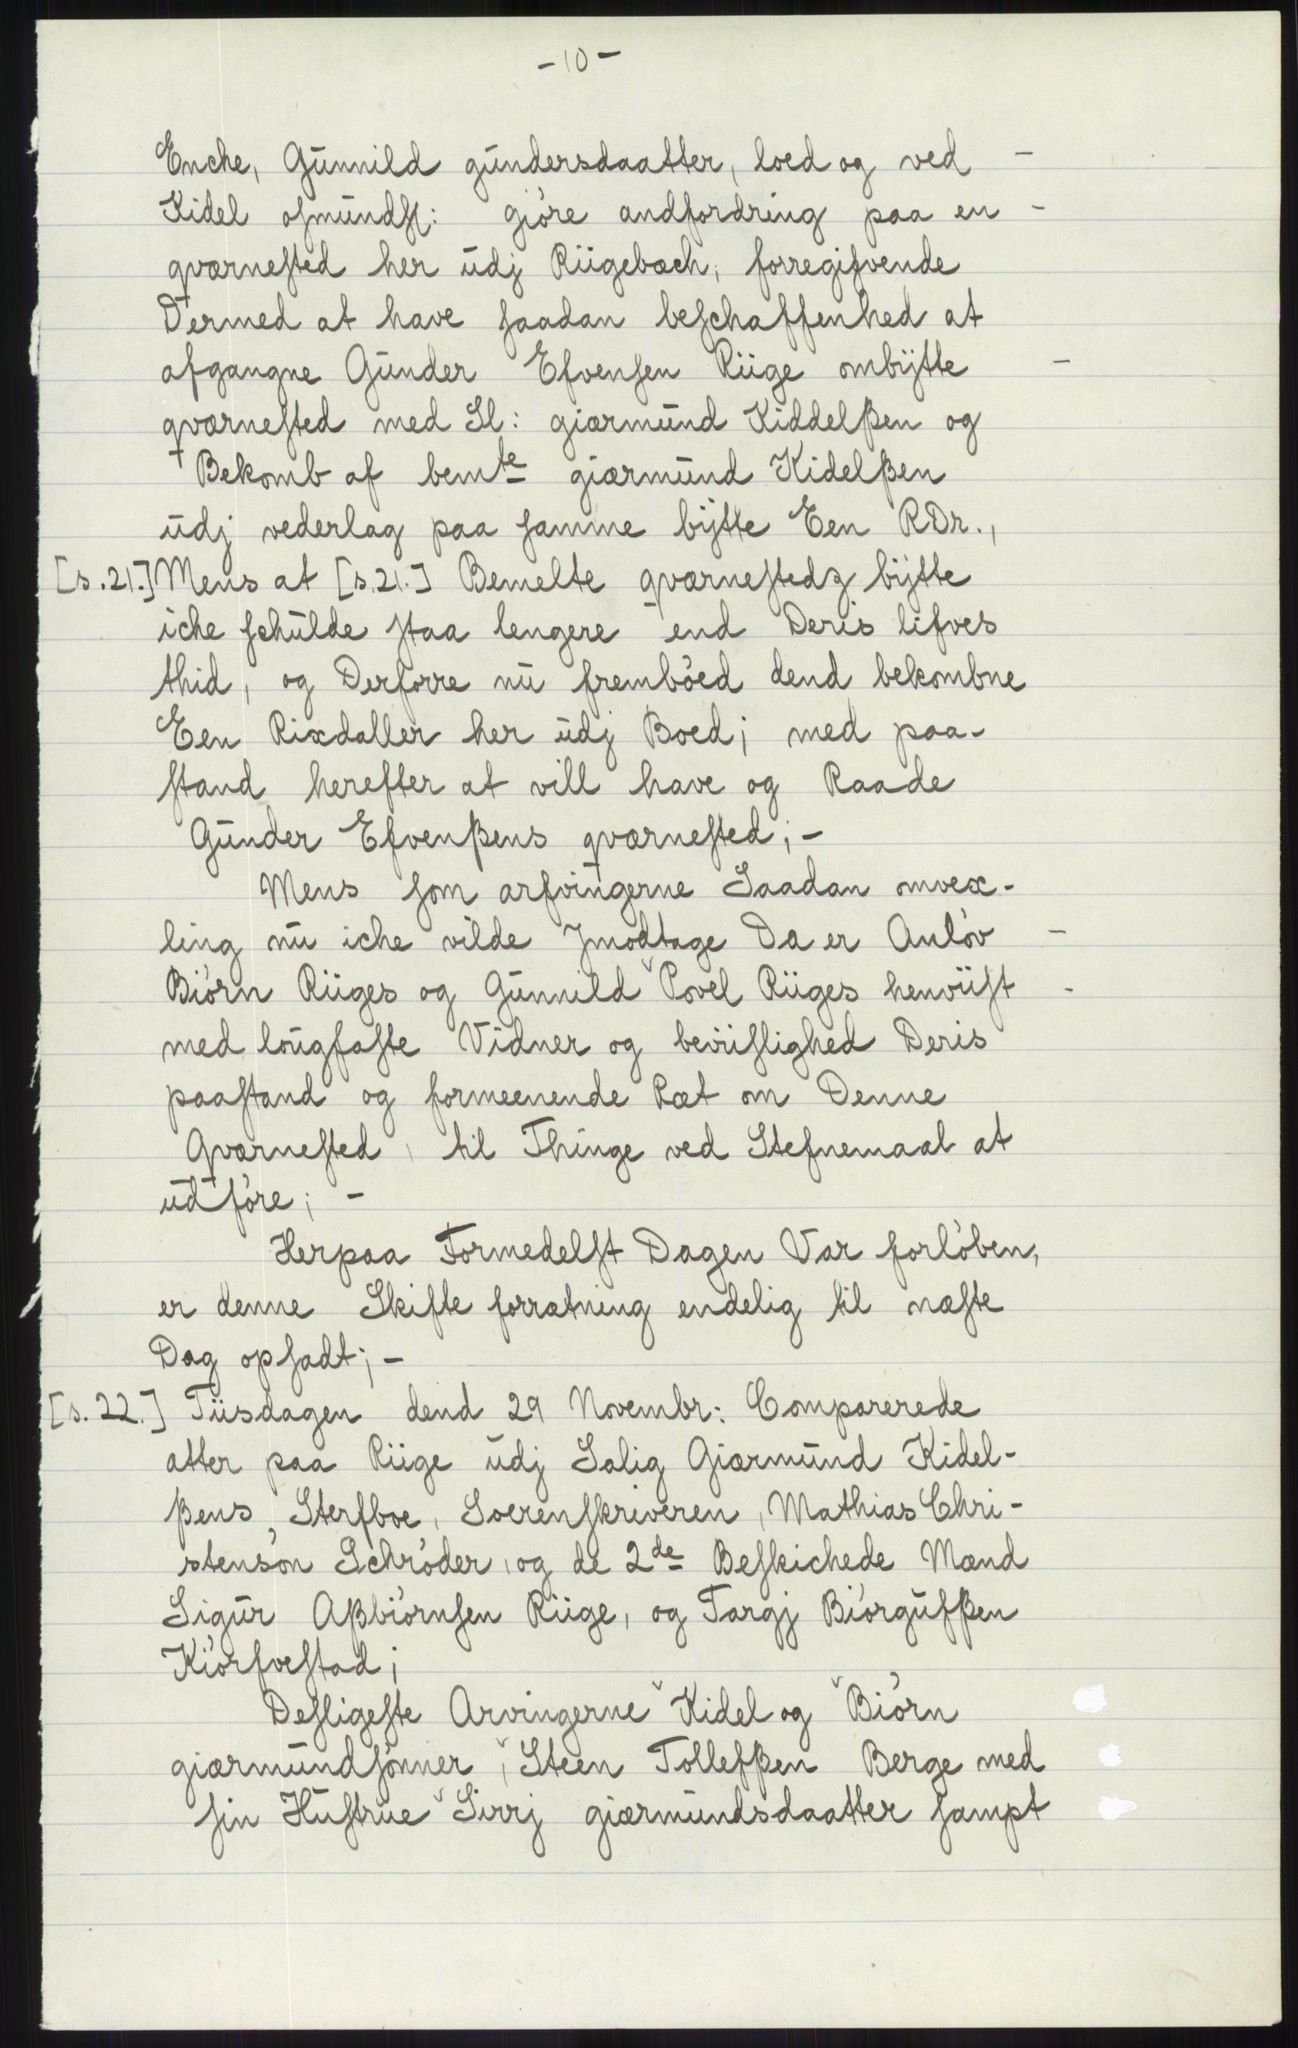 -10-
Enche, Gunnild gundersdaatter, loed og ved -
Kidel osmundsl: giöre andfordring paa en -
qvœrnested her udj Riigebœch, forregifvende
Dermed at have saadan beschaffenhed at
afgangne Gunder Efvensen Riige ombÿtte -
qvœrnested med Sl: giœrmund Kiddelßen og
Bekomb af bemte giœrmund Kidelßen
udj vederlag paa samme bÿtte Een RDr.,
[s.21.] Mens at [s.21.] Bemelte qvœrnestedz bÿtte
iche schulde staa lengere end Deris lifves
thid, og Derforre nu fremböed dend bekombne
Een Rixdaller her udj Boed; med paa-
stand herefter at vill have og Raade
Gunder Efvenßens qvœrnested; -
Mens som arfvingerne Saadan omvex-
ling nu iche vilde Jmodtage Da er Anlöv -
Biörn Riiges og Gunnild Povel Riiges henviist -
med lougfaste Vidner og beviislighed Deris
paastand og formeenende Rœt om Denne
Qvœrnested, til Thinge ved Stefnemaal at
udföre; -
Herpaa Formedelst Dagen Var forlöben,
er denne Skifte forrœtning endelig til nœste
Dag opsadt; -
[s.22.] Tiisdagen dend 29 Novembr: Comparerede
atter paa Riige udj Salig Giœrmund Kidel-
ßens Sterfboe, Soerenskriveren, Mathias Chri-
stensön Schröder, og de 2de Beskichede Mœnd
Sigur Aßbiörnsen Riige, og Targj Biörgufßen
Kiörfvestad;
Desligeste Arvingerne Kidel og Biörn
giœrmundsönner, Steen Tollefßen Berge med
sin Hustrue Sirrj giœrmundsdaatter sampt